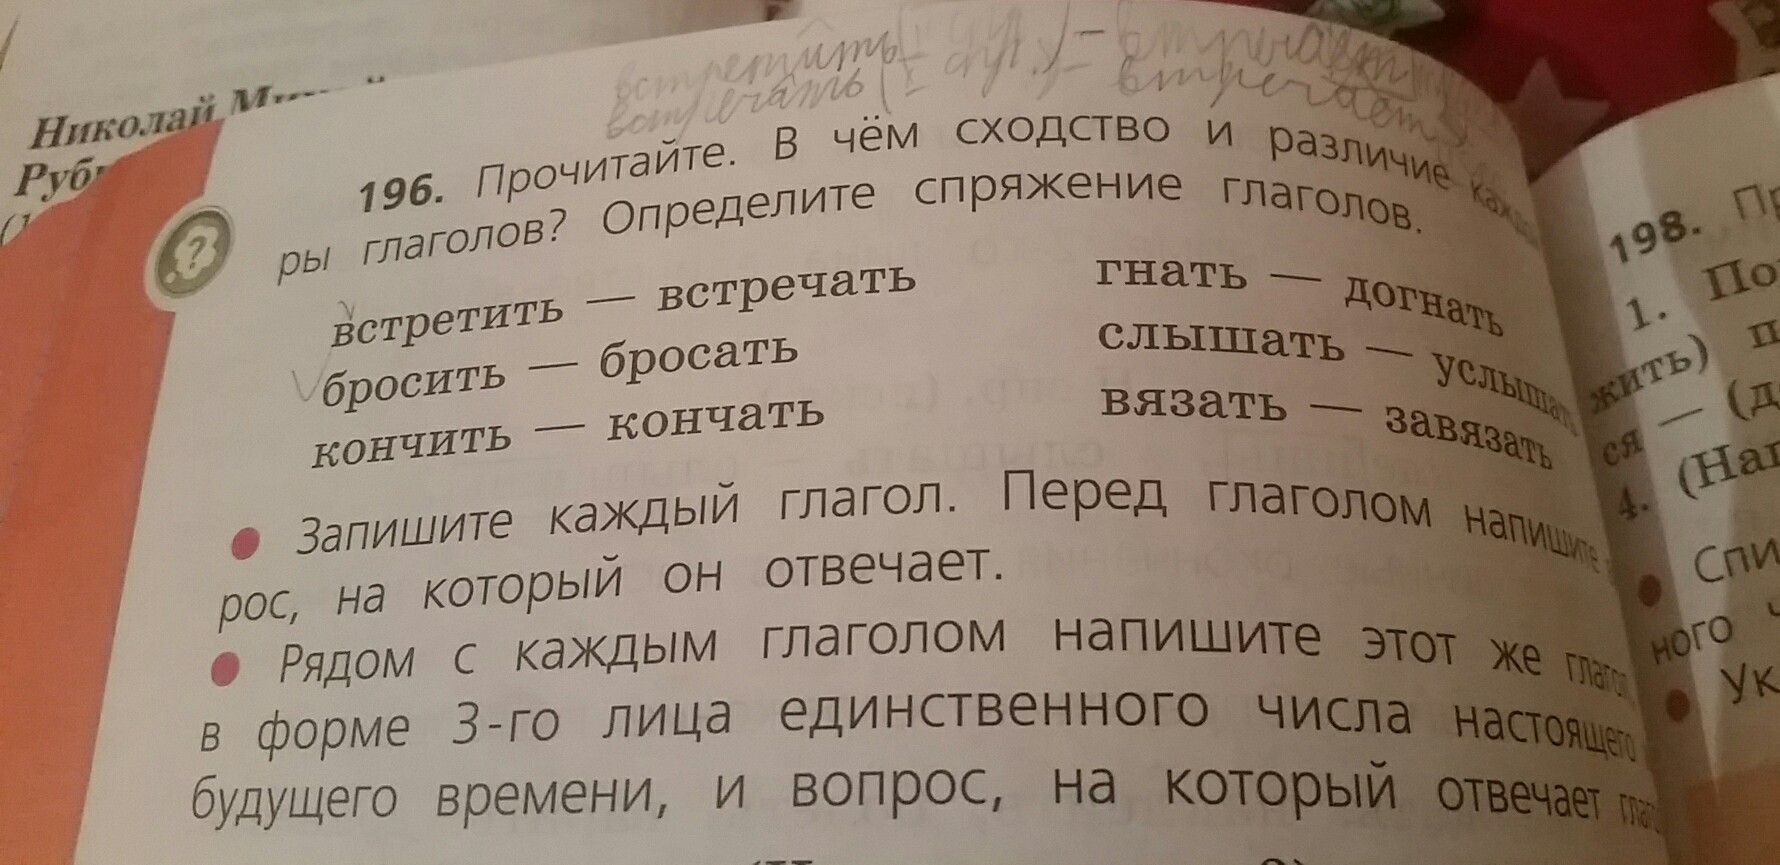 Николай
встретить
встречать
встречает
196. Прочитайте. В чём сходство и различие
ры глаголов? Определите спряжение глаголов.
встретить — встречать
бросить — бросать
кончить — кончать
гнать — догнать
слышать — услышать
вязать — завязать
● Запишите каждый глагол. Перед глаголом напишите
рос, на который он отвечает.
● Рядом с каждым глаголом напишите этот же
в форме 3-го лица единственного числа настоящего
будущего времени, и вопрос, на который отвечает
198.
1.
жить)
ся — (
4. (
● 
ного
● Ук